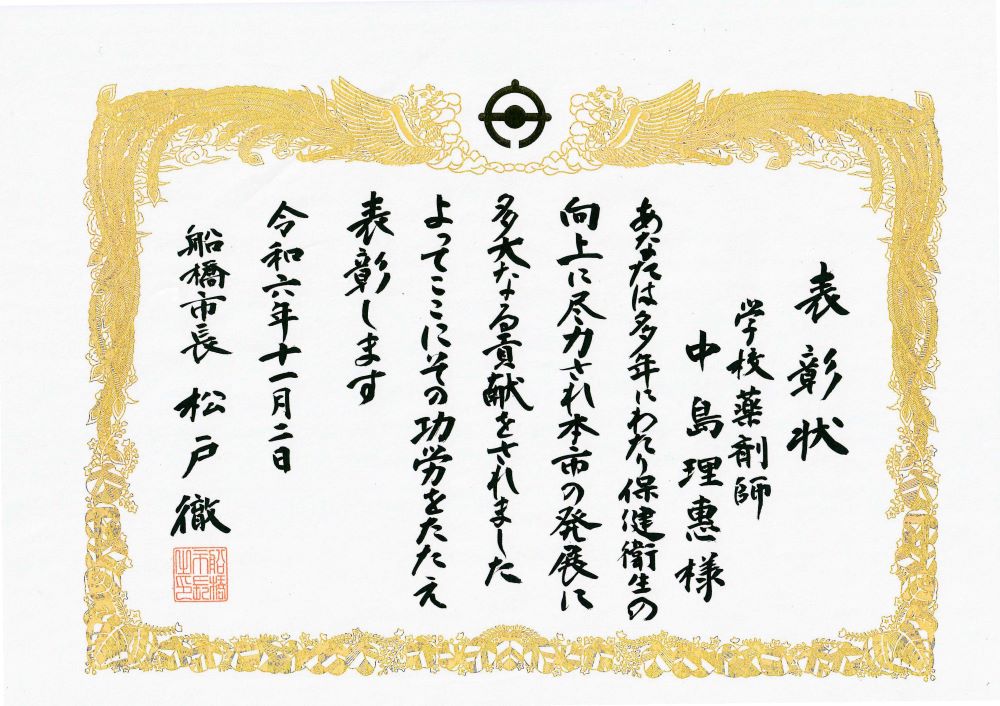 表彰状
学校薬剤師
中島理惠様
あなたは多年にわたり保健衛生の
向上に尽力され本市の発展に
多大なる貢献をされました
よってここにその功労をたたえ
表彰します
令和六年十一月二日
船橋市長 松戸徹
船橋市長之印